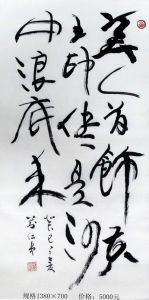 美人首飾侯
王印尽是沙
中浪底来
癸巳之夏
规格1380×700 价格：5000元